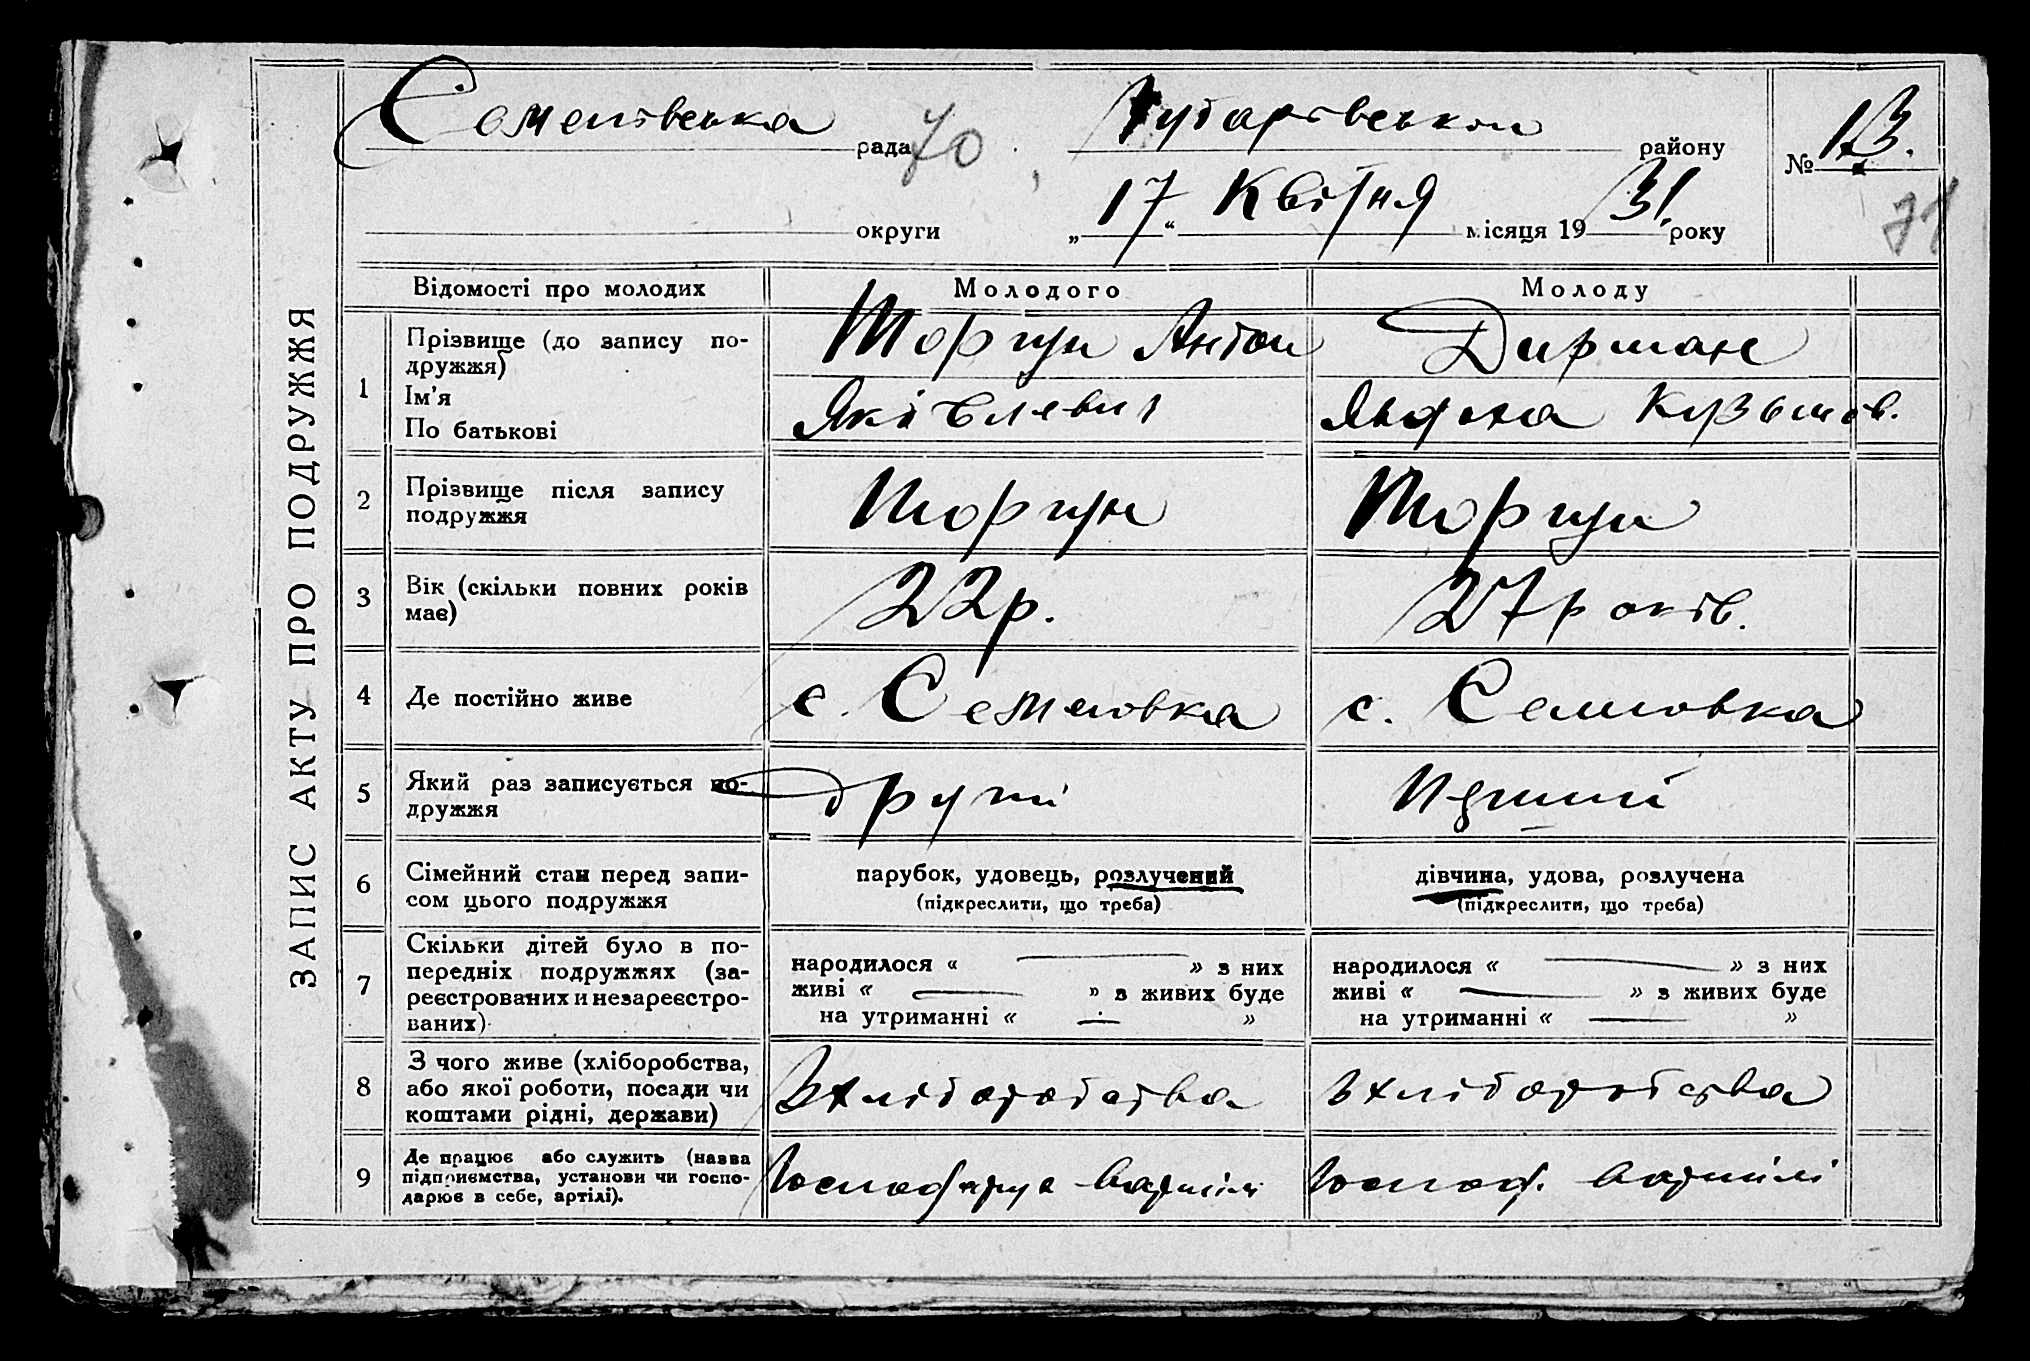 ЗАПИС АКТУ ПРО ПОДРУЖЖЯ
Семенівська рада 70, Чубарівськои району
№ 13.
71
округи „17“ Квітня місяця 1931 року
Відомості про молодих Молодого Молоду
1 Прізвище (до запису по-
дружжя)
Ім'я
По батькові
Моргун Антон
Яківлевич
Дирман
Явдоха Кузьмов.
2 Прізвище після запису
подружжя
Моргун Моргун
3 Вік (скільки повних років
має)
22р. 27років.
4 Де постійно живе с. Семеновка с. Семновка
5 Який раз записується по-
дружжя
другий Перший
6 Сімейний стан перед запи-
сом цього подружжя
парубок, удовець, розлучений
(підкреслити, що треба)
дівчина, удова, розлучена
(підкреслити, що треба)
7 Скільки дітей було в по-
передніх подружжях (за-
реєстрованих и незареєстро-
ваних)
народилося « — » з них
живі « — » з живих буде
на утриманні « — »
народилося « — » з них
живі « — » з живих буде
на утриманні « — »
8 З чого живе (хліборобства,
або якої роботи, посади чи
коштами рідні, держави)
Зхліборобства зхліборобства
9 Де працює або служить (назва
підприємства, установи чи госпо-
дарює в себе, артілі).
Господарує вартілі Господ. вартілі